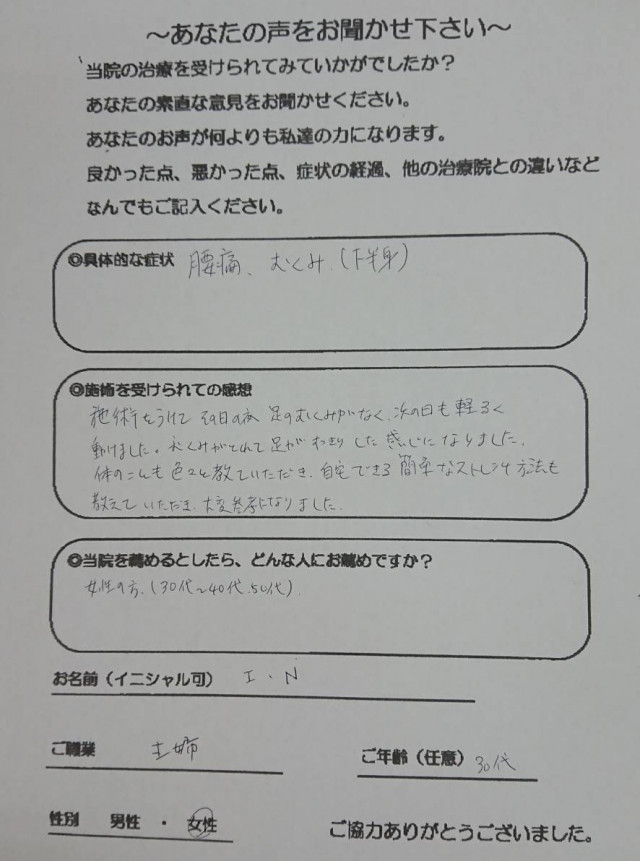 ～あなたの声をお聞かせ下さい～
当院の治療を受けられてみていかがでしたか？
あなたの素直な意見をお聞かせください。
あなたのお声が何よりも私達の力になります。
良かった点、悪かった点、症状の経過、他の治療院との違いなど
なんでもご記入ください。
◎具体的な症状 腰痛、むくみ(下半身)
◎施術を受けられての感想
施術をうけて その日の夜 足のむくみがなく、次の日も軽るく
動けました。むくみがとれて足がすっきりした感じになりました。
体のことも色々と教えていただき、自宅でできる簡単なストレッチ方法も
教えていただき、大変参考になりました。
◎当院を薦めるとしたら、どんな人にお薦めですか？
女性の方、(30代～40代、50代)
お名前（イニシャル可） I・N
ご職業 主婦 ご年齢（任意） 30代
性別 男性 ・ 女性 ご協力ありがとうございました。